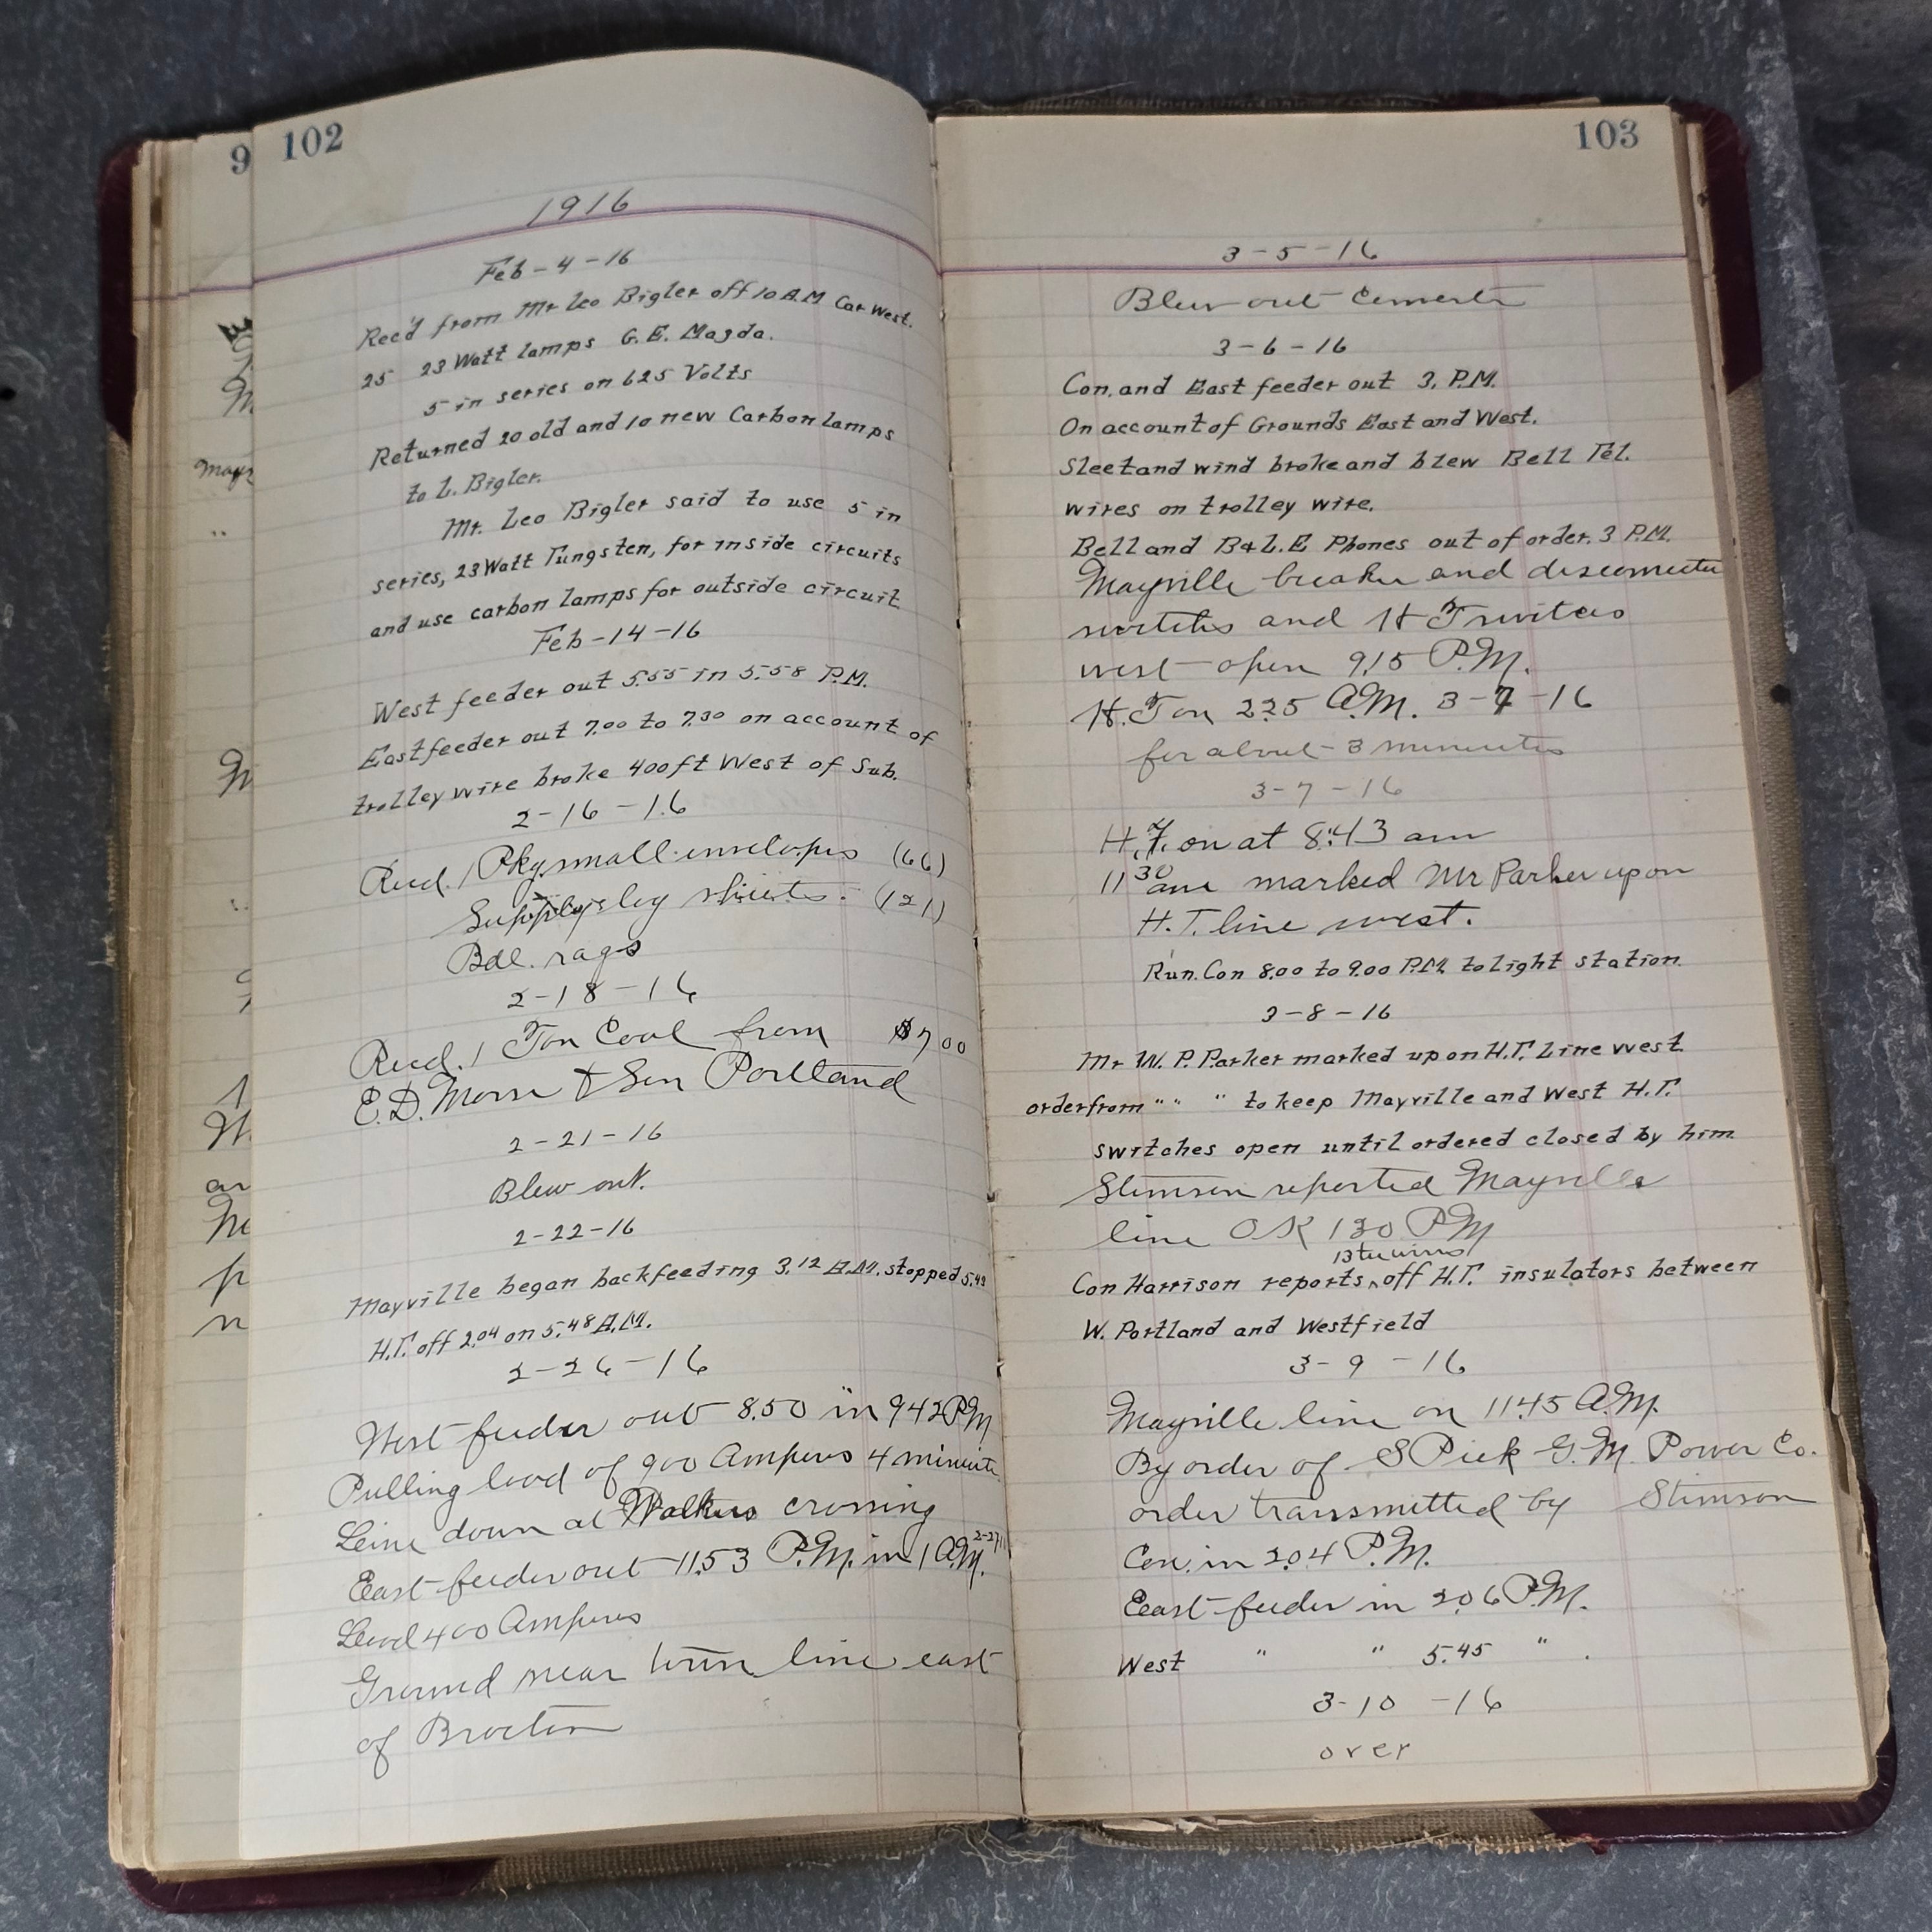 102
1916
Feb-4-16
Rec'd from Mr Leo Bigler off 10 A.M Car West.
25 23 Watt lamps G.E. Mazda.
5 in series on 625 Volts
Returned 20 old and 10 new Carbon lamps
to L. Bigler.
Mr. Leo Bigler said to use 5 in
series, 23 Watt Tungsten, for inside circuits
and use carbon lamps for outside circuit
Feb-14-16
West feeder out 5.55 in 5.58 P.M.
East feeder out 7.00 to 7.30 on account of
trolley wire broke 400 ft West of Sub.
2-16-16
Recd. 1 Pkg small envelopes (66)
Supply sheets. (121)
Bdl. rags
2-18-16
Recd. 1 Ton Coal from $7 00
E.D. Morse & Son Portland
2-21-16
Blew out.
2-22-16
Mayville began backfeeding 3.12 A.M. stopped 5.49
H.T. off 2.04 on 5.48 A.M.
2-26-16
West feeder out 8.50 in 942 P.M
Pulling load of 900 Amperes 4 minute
Line down at Walkers crossing
East feeder out 11.53 P.M. in 1 A.M. 2-27
Load 400 Amperes
Ground near town line east
of Brocton
103
3-5-16
Blew out
3-6-16
Con. and East feeder out 3. P.M.
On account of Grounds East and West.
Sleet and wind broke and blew Bell Tel.
wires on trolley wire.
Bell and B&L.E Phones out of order. 3 P.M.
Mayville breaker and disconnecte
switches and H T switches
west open 9.15 P.M.
H.T on 2.25 A.M. 3-7-16
for about 3 minutes
3-7-16
H.T. on at 8:43 am
11 30 am marked Mr Parker up on
H.T. line west.
Run. Con 8.00 to 9.00 P.M. to light station.
3-8-16
Mr W. P. Parker marked up on H.T. Line west
order from " " " to keep Mayville and West H.T.
switches open until ordered closed by him.
Stimson reported Mayville
line OK 1 30 PM
13 tie wires
Con Harrison reports ^ off H.T. insulators between
W. Portland and Westfield
3-9-16
Mayville line on 11.45 A.M.
By order of S Pick G.M. Power Co.
order transmitted by Stimson
Con. in 2.04 P.M.
East feeder in 2.06 P.M.
West " " 5.45 " .
3-10-16
over